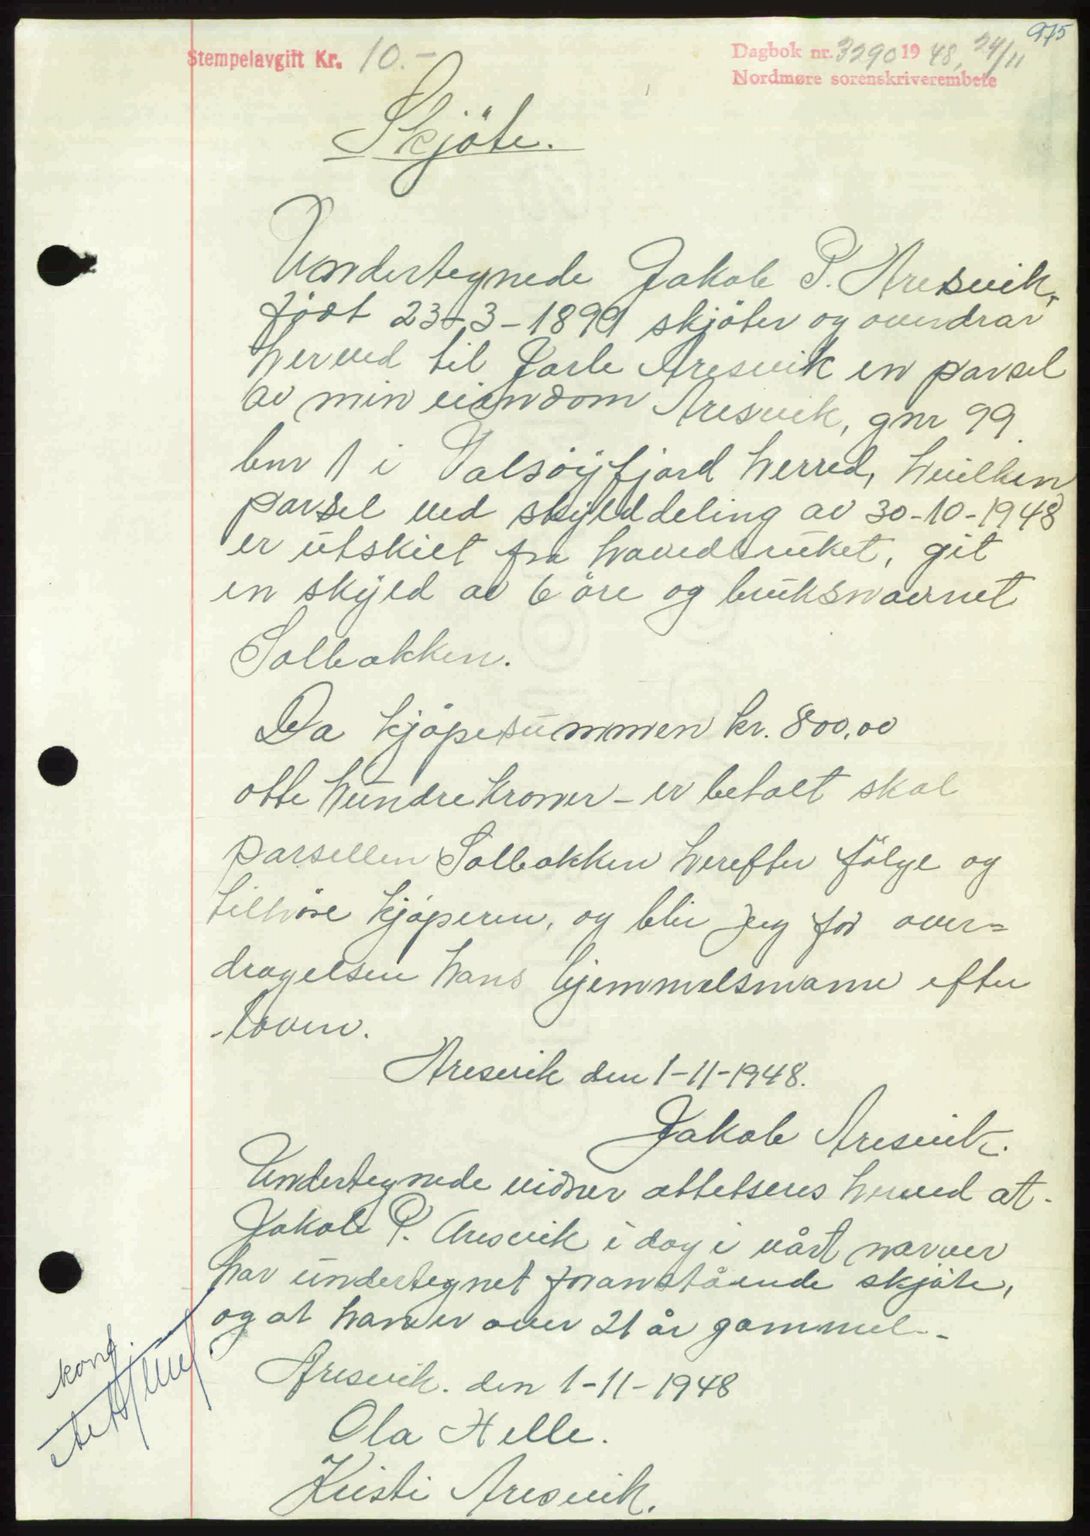 975
Stempelavgift Kr. 10.-
Dagbok nr. 3290 1948, 24/11
Nordmøre sorenskriverembete
Skjöte.
Undertegnede Jakob P. Aresvik,
födt 23-3-1899 skjöter og overdrar
herved til Jarle Aresvik en parsel
av min eiendom Aresvik, gnr 99
bnr 1 i Valsöyfjord herred, hvilken
parsel ved skylddeling av 30-10-1948
er utskilt fra hovedbruket, git
en skyld av 6 öre og bruksnavnet
Solbakken.
Da kjöpesummen kr. 800,00
otte hundre kroner - er betalt skal
parsellen Solbakken herefter fölge og
tilhöre kjöperen, og blir jeg for over=
dragelsen hans hjemmelsmann efter
loven.
Aresvik den 1-11-1948.
Jakob Aresvik.
Undertegnede vidner attesteres herved at
Jakob P. Aresvik i dag i vårt nærvær
har undertegnet foranstående skjöte,
og at han er over 21 år gammel.
Aresvik. den 1-11-1948
Ola Helle.
Kristi Aresvik.
konf.